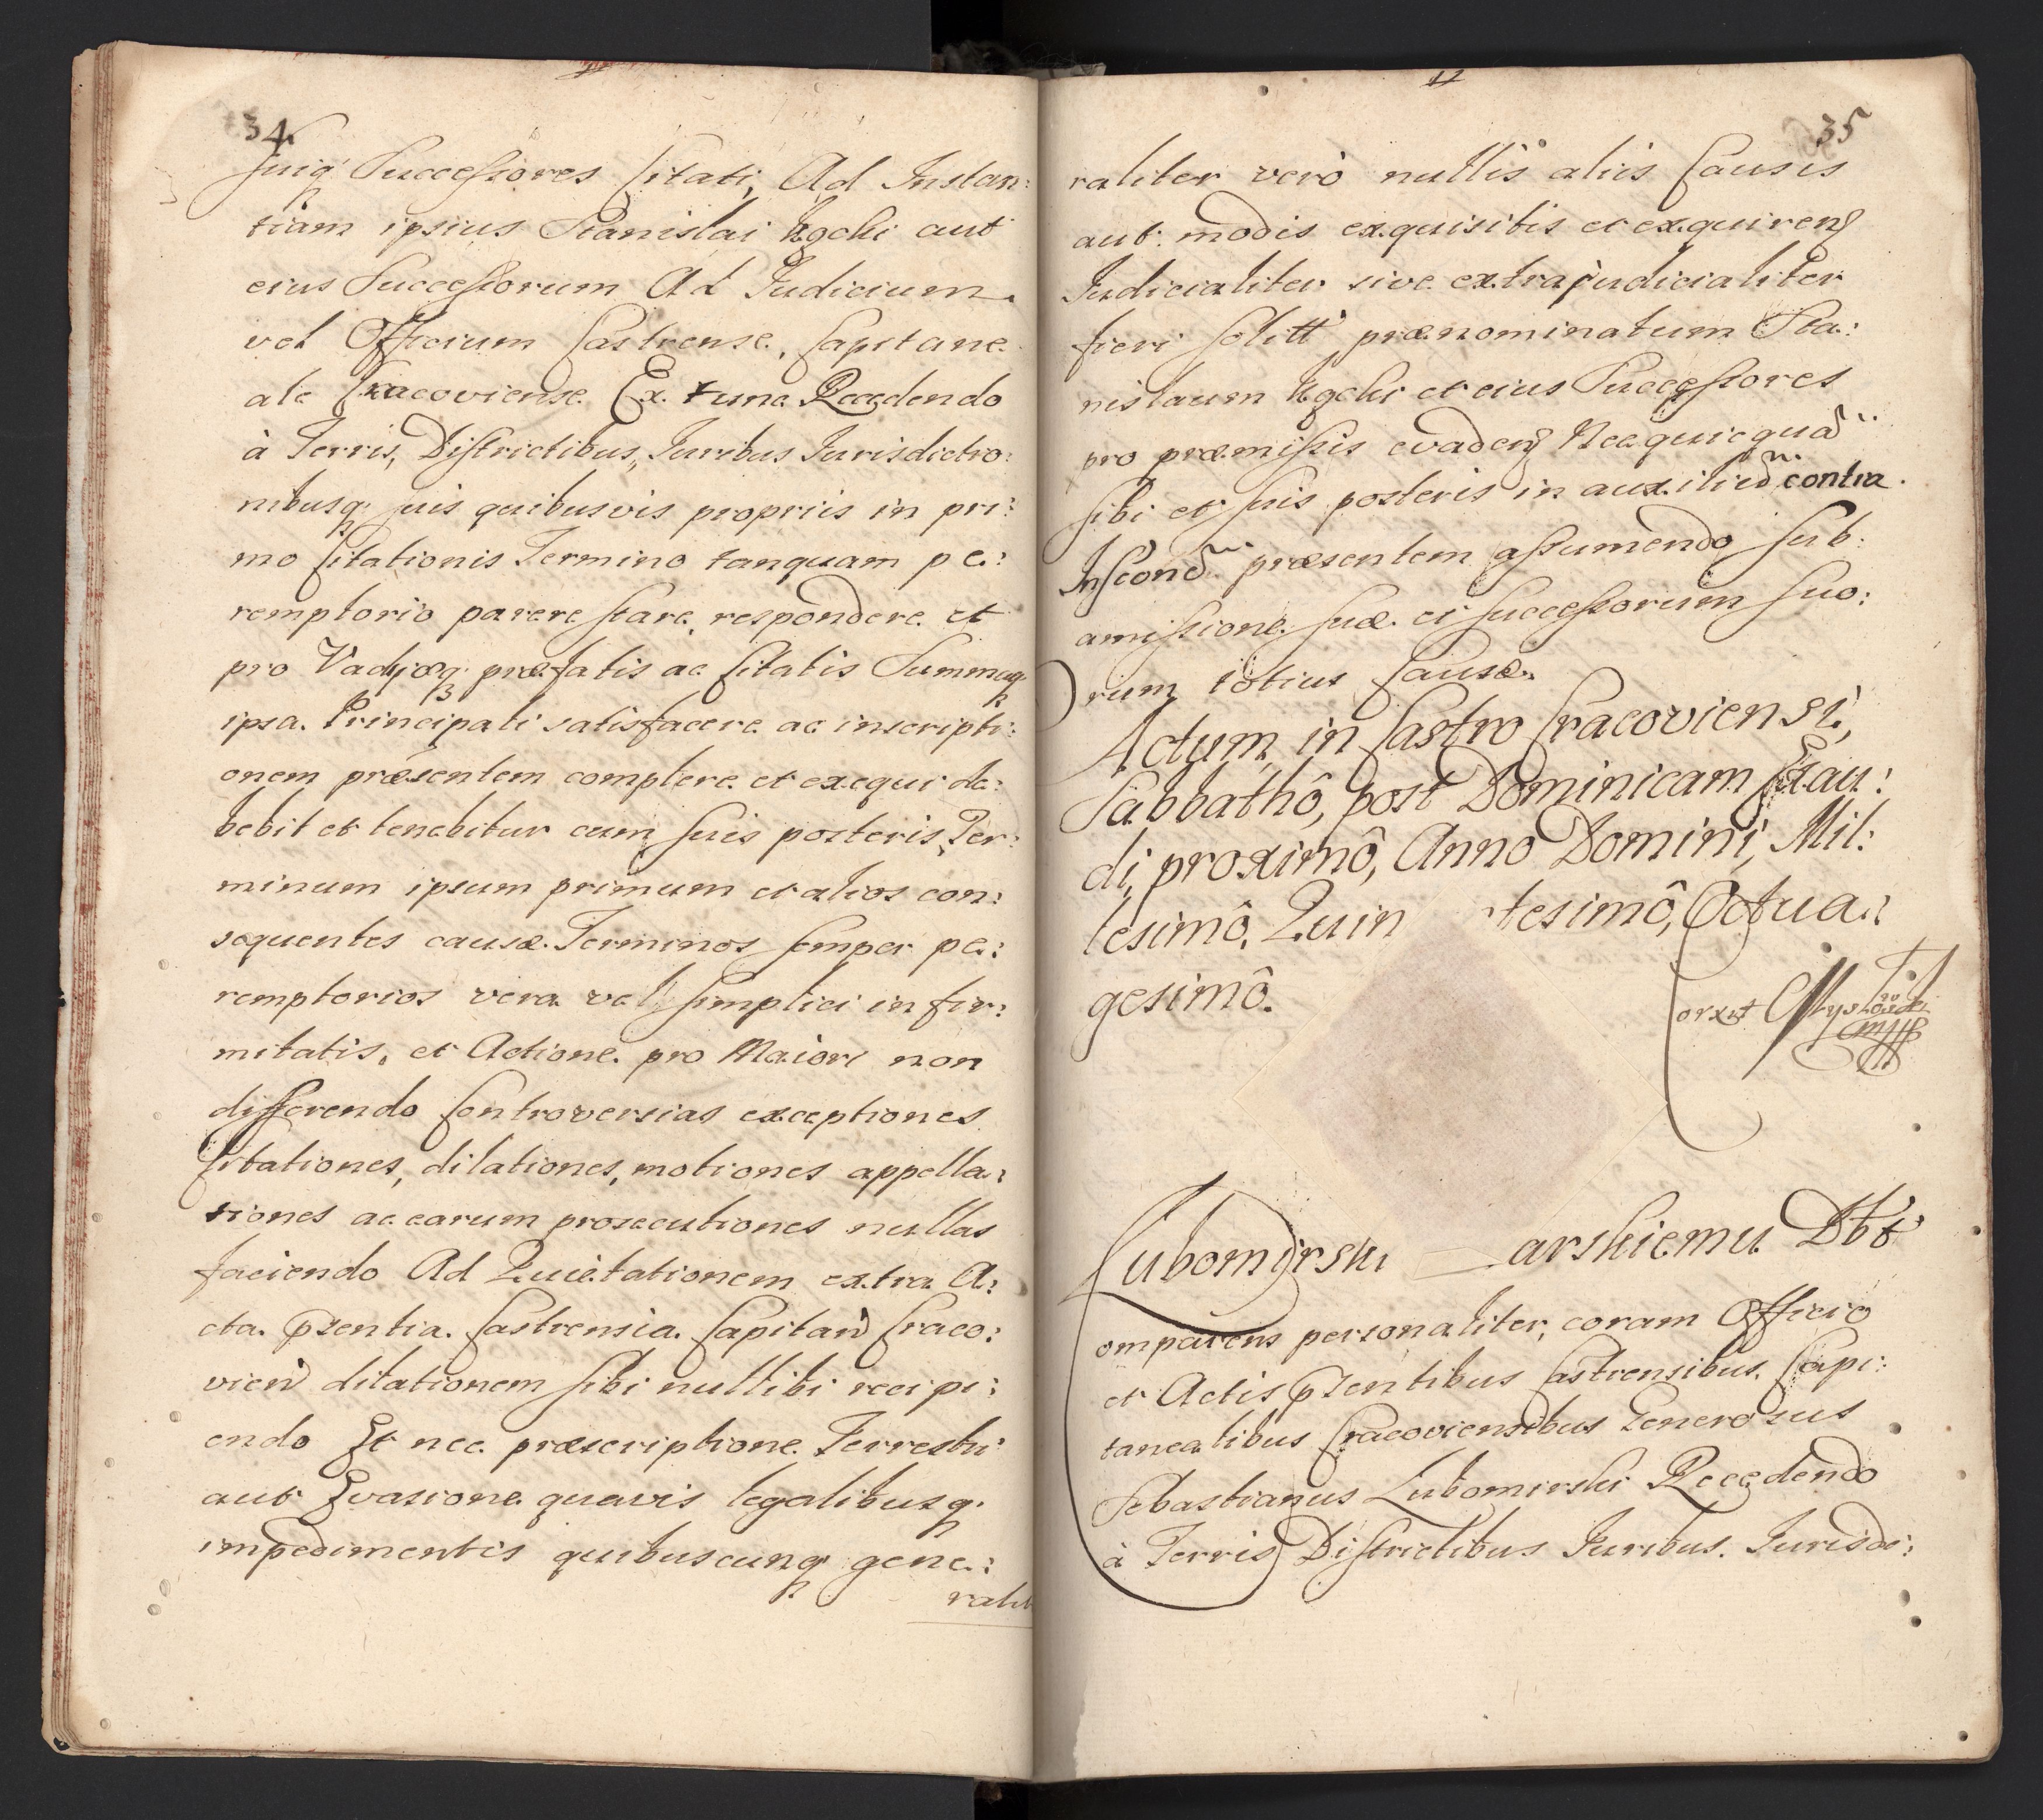 34
suiq Successores Citati, Ad Instan:
tiam ipsius Stanislai Ugchi aut
eius Successorum Ad Judicium
vel Officium Castrense, Capitane
ale Cracoviense Ex tunc Recedendo
à Terris, Districtibus, Juribus Jurisdictio:
nibusq suis quibusvis propriis in pri:
mo Citationis Termino tanquam pe:
remptorio parere stare, respondere et
pro Vadijsq præfatis ac Citatis Summaq
ipsa Principali satisfacere ac inscripti:
onem præsentem complere et exequi de:
bebit et tenebitur cum suis posteris, Ter:
minum ipsum primum et alios con:
sequentes causæ Terminos semper pe:
remptorios vera vel simplici infir:
mitatis, et Actione pro Maiori non
differendo Controversias exceptiones
Citationes, dilationes, motiones appella:
tiones ac earum prosecutiones nullas
faciendo Ad Quietationem extra A:
cta pzentia Castrensia Capitan Craco:
vien dilationem sibi nullibi recipi:
endo Et nec præscriptione Terrestri
aut Evasione quavis legalibusq
impedimentis quibuscunq gene:
ralit
35
raliter verò nullis aliis Causis
aut modis exquisitis et exquiren
Judicialiter sive extrajudicialiter
fieri solitt prænominatum Sta:
nislaum Ugchi et eius Successores
pro præmissis evaden Nec quicquã
sibi et suis posteris in auxiliũ contra
Insconẽ præsentem assumendo sub
amissione suæ et successorum suo:
rum totius Causæ.
Actum in Castro Cracoviensi,
Sabbathô, post Dominicam Exau:
di, proximô, Anno Domini, Mil:
lesimô, Quin tesimô, Octua:
gesimô.
orxit
Lubomirski arskiemu Dbt
omparens personaliter, coram Officio
et Actis pzentibus Castrensibus Capi:
tanealibus Cracoviensibus Generosus
Sebastianus Lubomirski Recedendo
à Terris Districtibus Juribus Jurisdi: